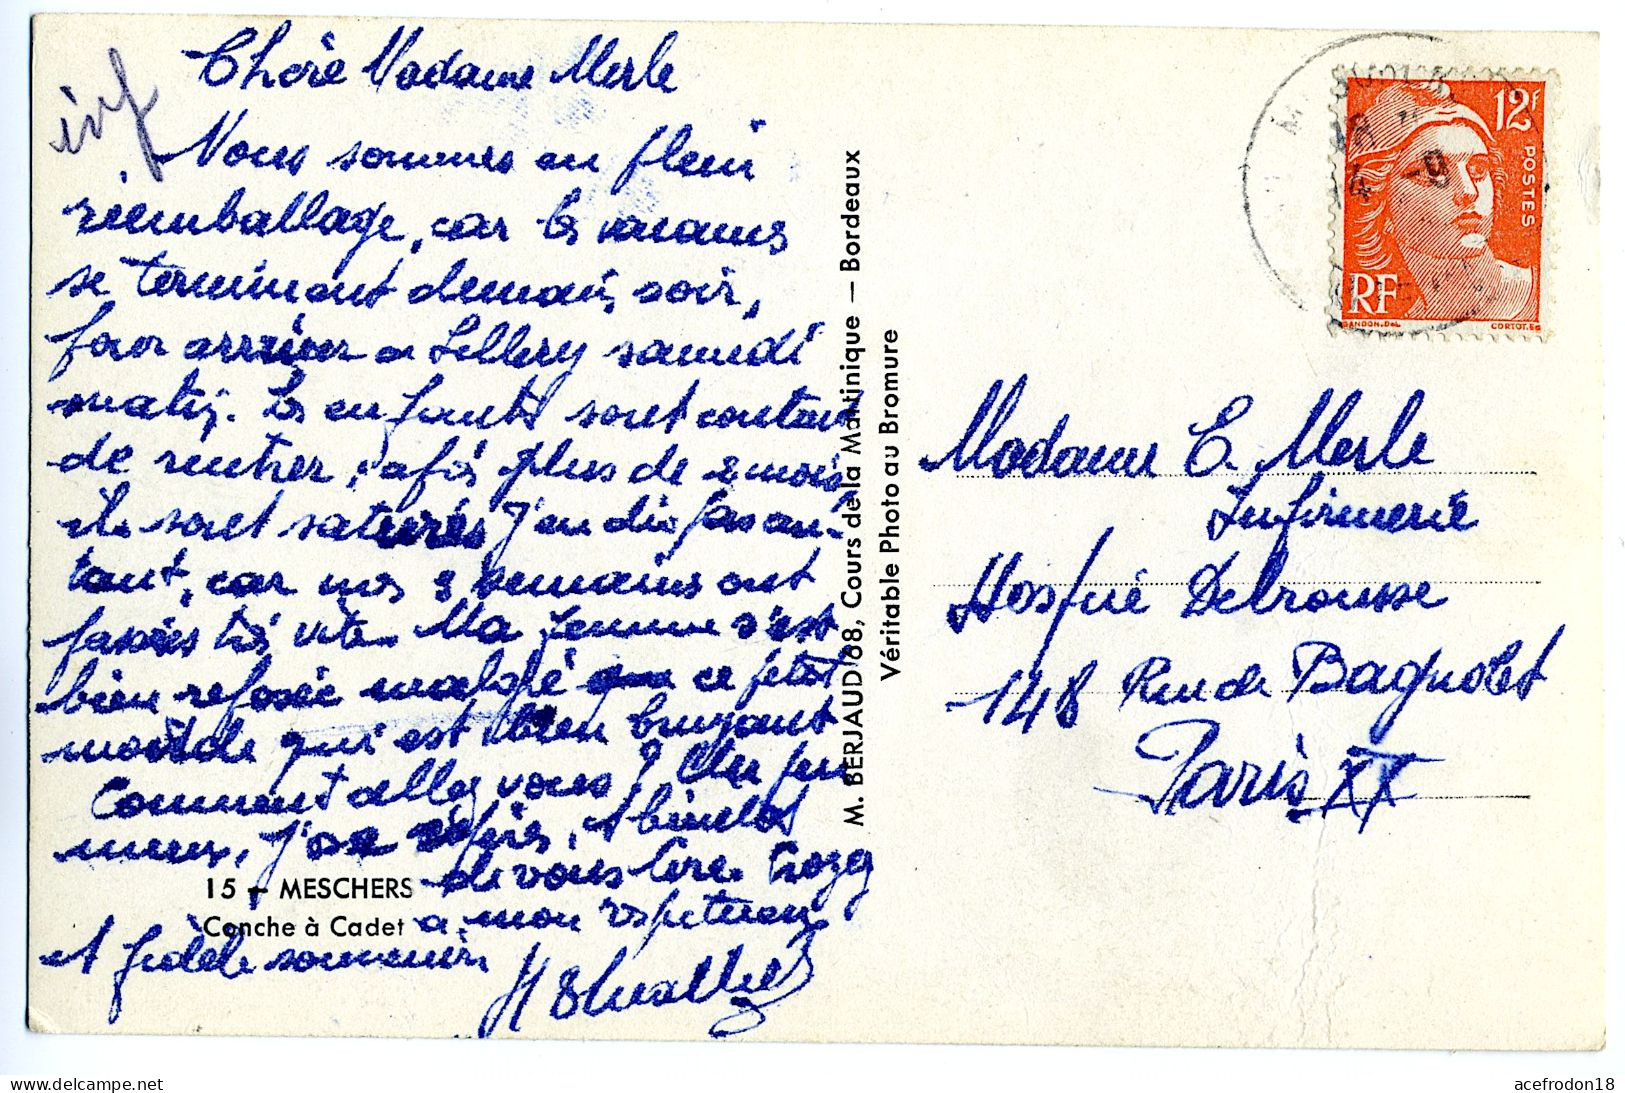 inf
Chère Madame Merle
Nous sommes en plein
réemballage, car les vacances
se terminent demain, soir,
pour arriver à samedi
matin. Les enfants sont contents
de rentrer, après plus de 2 mois,
ils sont saturés J'en dis pas au-
tant, car mes 3 semaines ont
passées très vite. Ma femme s'est
bien reposée malgré que ce petit
monde qui est bien bruyant
Comment allez vous ? 
mieux, j'ose espérer, et bientôt
de vous lire. Croyez
à mon respectueux
et fidèle souvenir.
15 - MESCHERS
Conche à Cadet
M. BERJAUD, 88, Cours de la Martinique — Bordeaux
Véritable Photo au Bromure
12F
POSTES
RF
GANDON. Del.
CORTOT. Eg
Madame E. Merle
Infirmerie
Hospice Debrousse
148 Rue de Bagnolet
Paris XX
acefrodon18